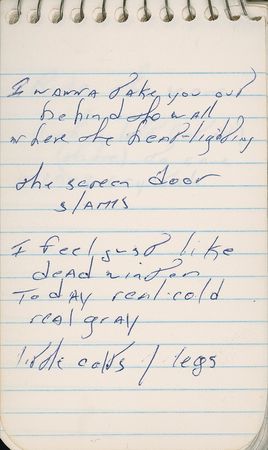 I WANNA TAKE you out
behind the wall
where the heat-lighting
the screen door
SLAMS
I feel just like
dead winter
TodAy real cold
real grAy
little colts / legs